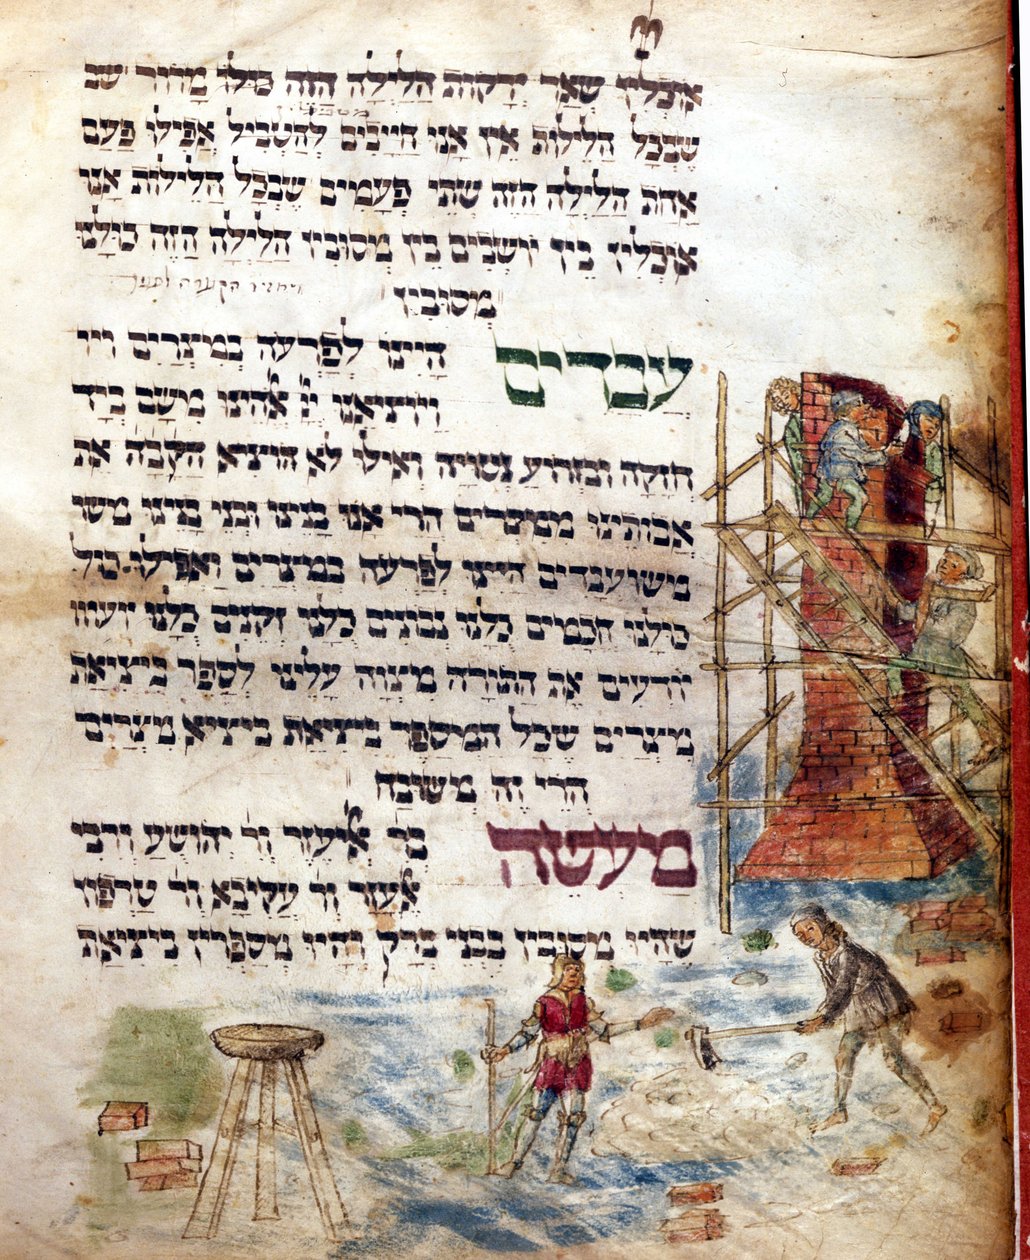 אוכלין שאר ירקות הלילה הזה כולו מרור שב
שבכל הלילות אין אנו חייבים להטביל אפילו פעם
אחת הלילה הזה שתי פעמים שבכל הלילות אנו
אוכלין בין יושבים בין מסובין הלילה הזה כולנו
מסובין
עבדים היינו לפרעה במצרים ויו
ויוציאנו יי אלהינו משם ביד
חזקה ובזרוע נטויה ואילו לא הוציא הקבה את
אבותינו ממצרים הרי אנו בנינו ובני בנינו משו
משועבדים היינו לפרעה במצרים ואפילו כול
כולנו חכמים כלנו נבונים כלנו זקנים כלנו יודעי
יודעים את התורה מצוה עלינו לספר ביציאת
מצרים שכל המספר ביציאת ביציא מצרים
הרי זה משובח
מעשה בר אליעזר ור יהושע ורבי
אלעזר ור עקיבא ור טרפון
שהיו מסובין בבני ברק והיו מספרין ביציאת